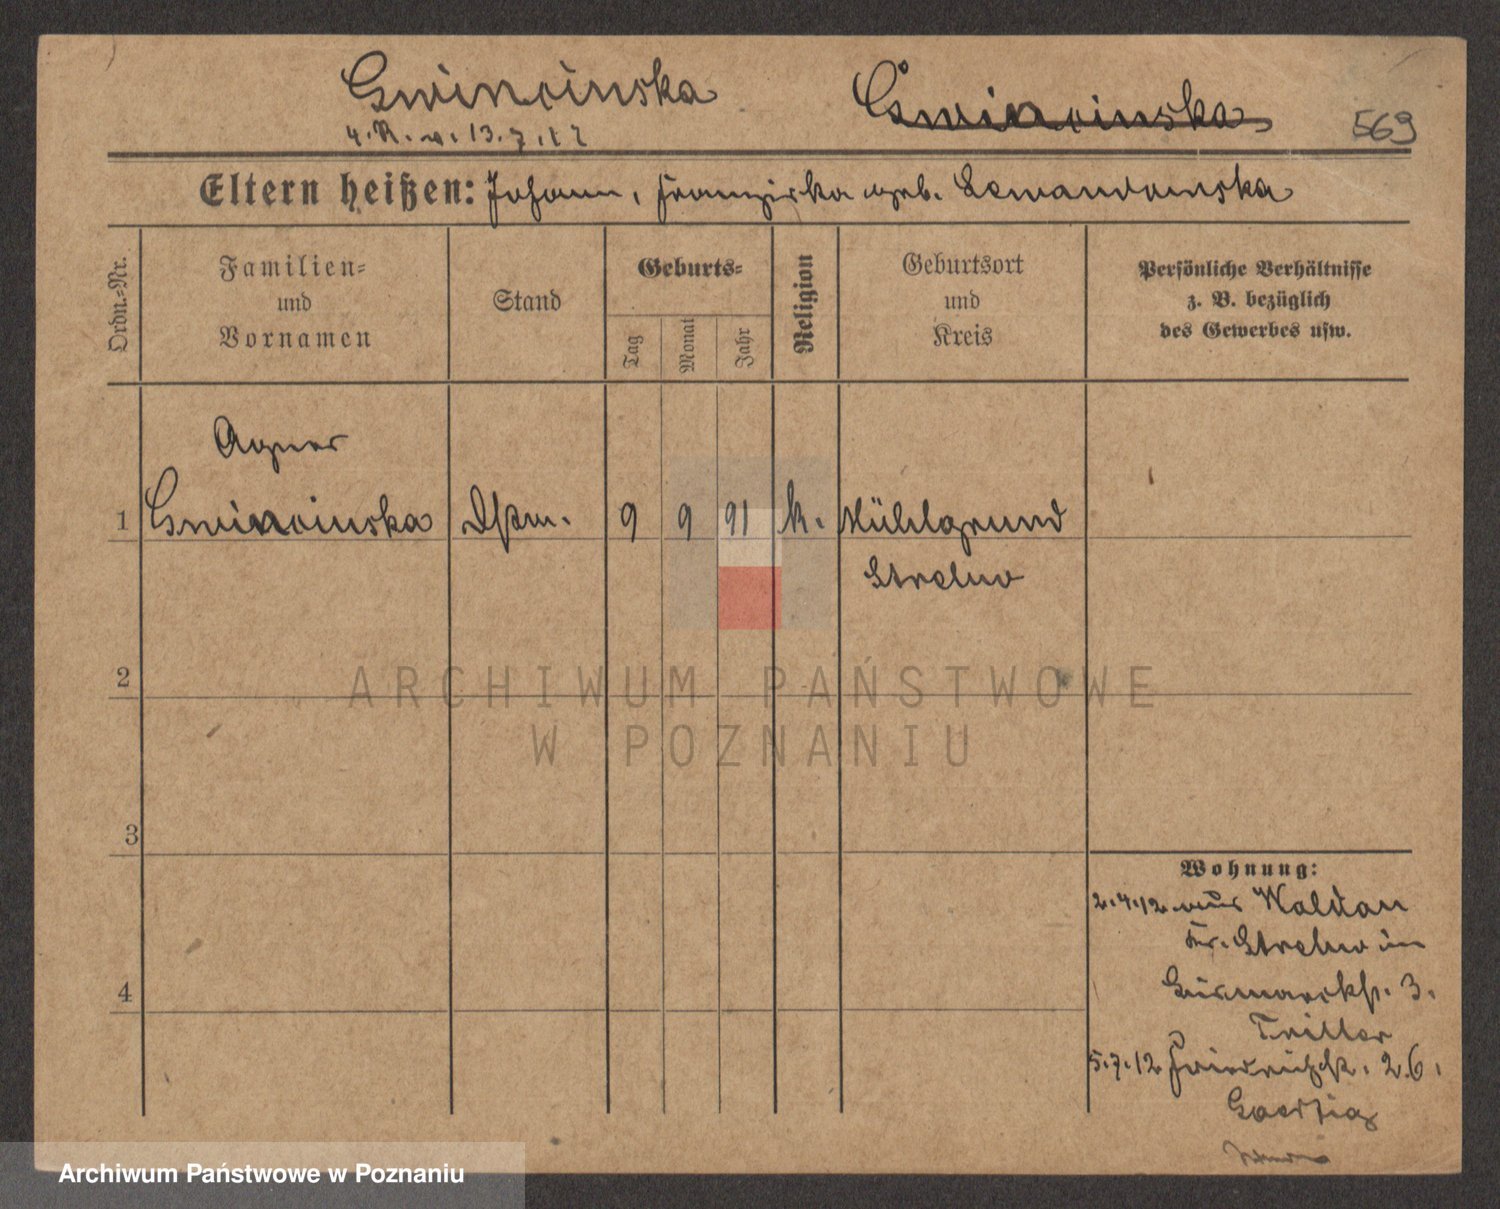 569
Eltern heißen: Johann, Franziska geb. Lewandowska
Ordn.-Nr.
Familien-
und
Vornamen
Stand
Geburts-
Tag
Monat
Jahr
Religion
Geburtsort
und
Kreis
Persönliche Verhältnisse
z. B. bezüglich
des Gewerbes usw.
Agnes
1 Dstm. 9 9 91 k. Mühlgrund
Strelno
2
3
4
ARCHIWUM PAŃSTWOWE
W POZNANIU
Wohnung:
2.4.12 aus Waldau
Kr. Strelno in
Bismarckstr. 3.
Triller
5.7.12 Friedrichstr. 26.
Archiwum Państwowe w Poznaniu